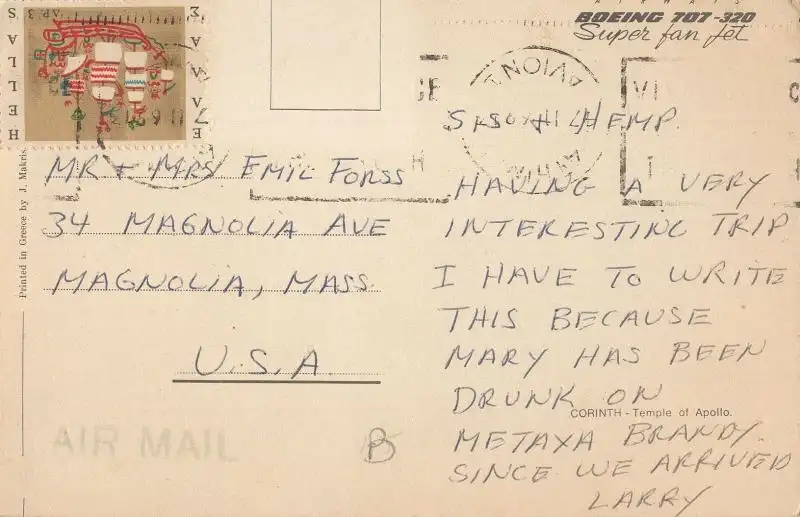 BOEING 707-320
Super fan Jet
HELLAS
AP. 3
Printed in Greece by J. Makris.
MR + MRS EMIL FORSS
34 MAGNOLIA AVE
MAGNOLIA, MASS.
U.S.A.
AIR MAIL
B
HEMP.
HAVING A VERY
INTERESTING TRIP
I HAVE TO WRITE
THIS BECAUSE
MARY HAS BEEN
DRUNK ON
CORINTH - Temple of Apollo.
METAXA BRANDY.
SINCE WE ARRIVED
LARRY